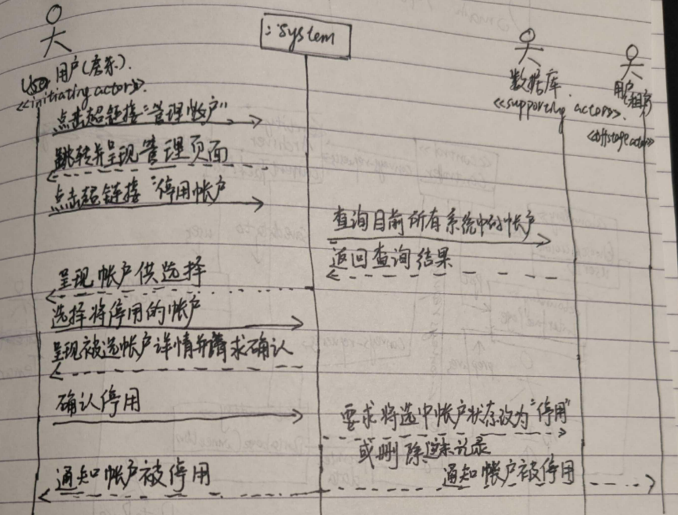 :System
User 用户(房东).
<<initiating actor>>.
数据库
<<supporting actor>>.
用户(租客)
<<offstage actor>>
点击超链接“管理帐户”
跳转并呈现管理页面
点击超链接“停用帐户
查询目前所有系统中的帐户
返回查询结果
呈现帐户供选择
选择将停用的帐户
呈现被选帐户详情并请求确认
确认停用
要求将选中帐户状态改为“停用”
或删除记录
通知帐户被停用
通知帐户被停用